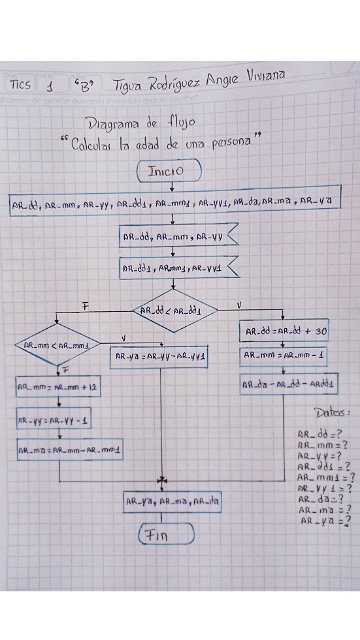 TICS 1 "B" Tigua Rodríguez Angie Viviana
Diagrama de flujo
"Calcular la edad de una persona"
Inicio
AR_dd, AR_mm, AR_yy, AR_dd1, AR_mm1, AR_yy1, AR_da, AR_ma, AR_ya
AR_dd, AR_mm, AR_yy
AR_dd1, ARmm1, AR_yy1
AR_dd < AR_dd1
F
V
AR_mm < AR_mm1
V
F
AR_ya = AR_yy - AR_yy1
AR_dd = AR_dd + 30
AR_mm = AR_mm - 1
AR_da - AR_dd - ARdd1
AR_mm = AR_mm + 12
AR_yy = AR_yy - 1
AR_ma = AR_mm - AR_mm1
Datos:
AR_dd = ?
AR_mm = ?
AR_yy = ?
AR_dd1 = ?
AR_mm1 = ?
AR_yy1 = ?
AR_da = ?
AR_ma = ?
AR_ya = ?
AR_ya, AR_ma, AR_da
Fin